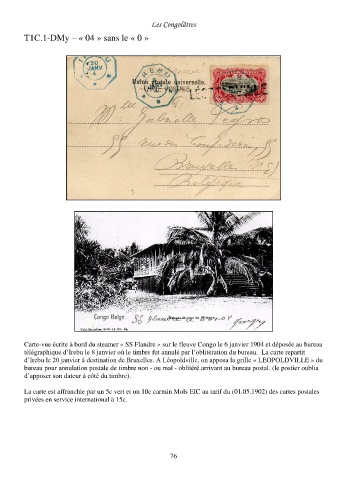 Les Congolâtres
T1C.1-DMy – « 04 » sans le « 0 »
20
JANV
4
Union postale universelle.
CARTE POSTALE
Mlle
Gabrielle
55
Bruxelles
Belgique
Congo Belge
SS Flandre
Carte-vue écrite à bord du steamer « SS Flandre » sur le fleuve Congo le 6 janvier 1904 et déposée au bureau
télégraphique d'Irebu le 8 janvier où le timbre fut annulé par l'oblitération du bureau. La carte repartit
d'Irebu le 20 janvier à destination de Bruxelles. A Léopoldville, on apposa la grille « LEOPOLDVILLE » du
bureau pour annulation postale de timbre non - ou mal - oblitéré arrivant au bureau postal. (le postier oublia
d'apposer son dateur à côté du timbre).
La carte est affranchie par un 5c vert et un 10c carmin Mols EIC au tarif du (01.05.1902) des cartes postales
privées en service international à 15c.
76